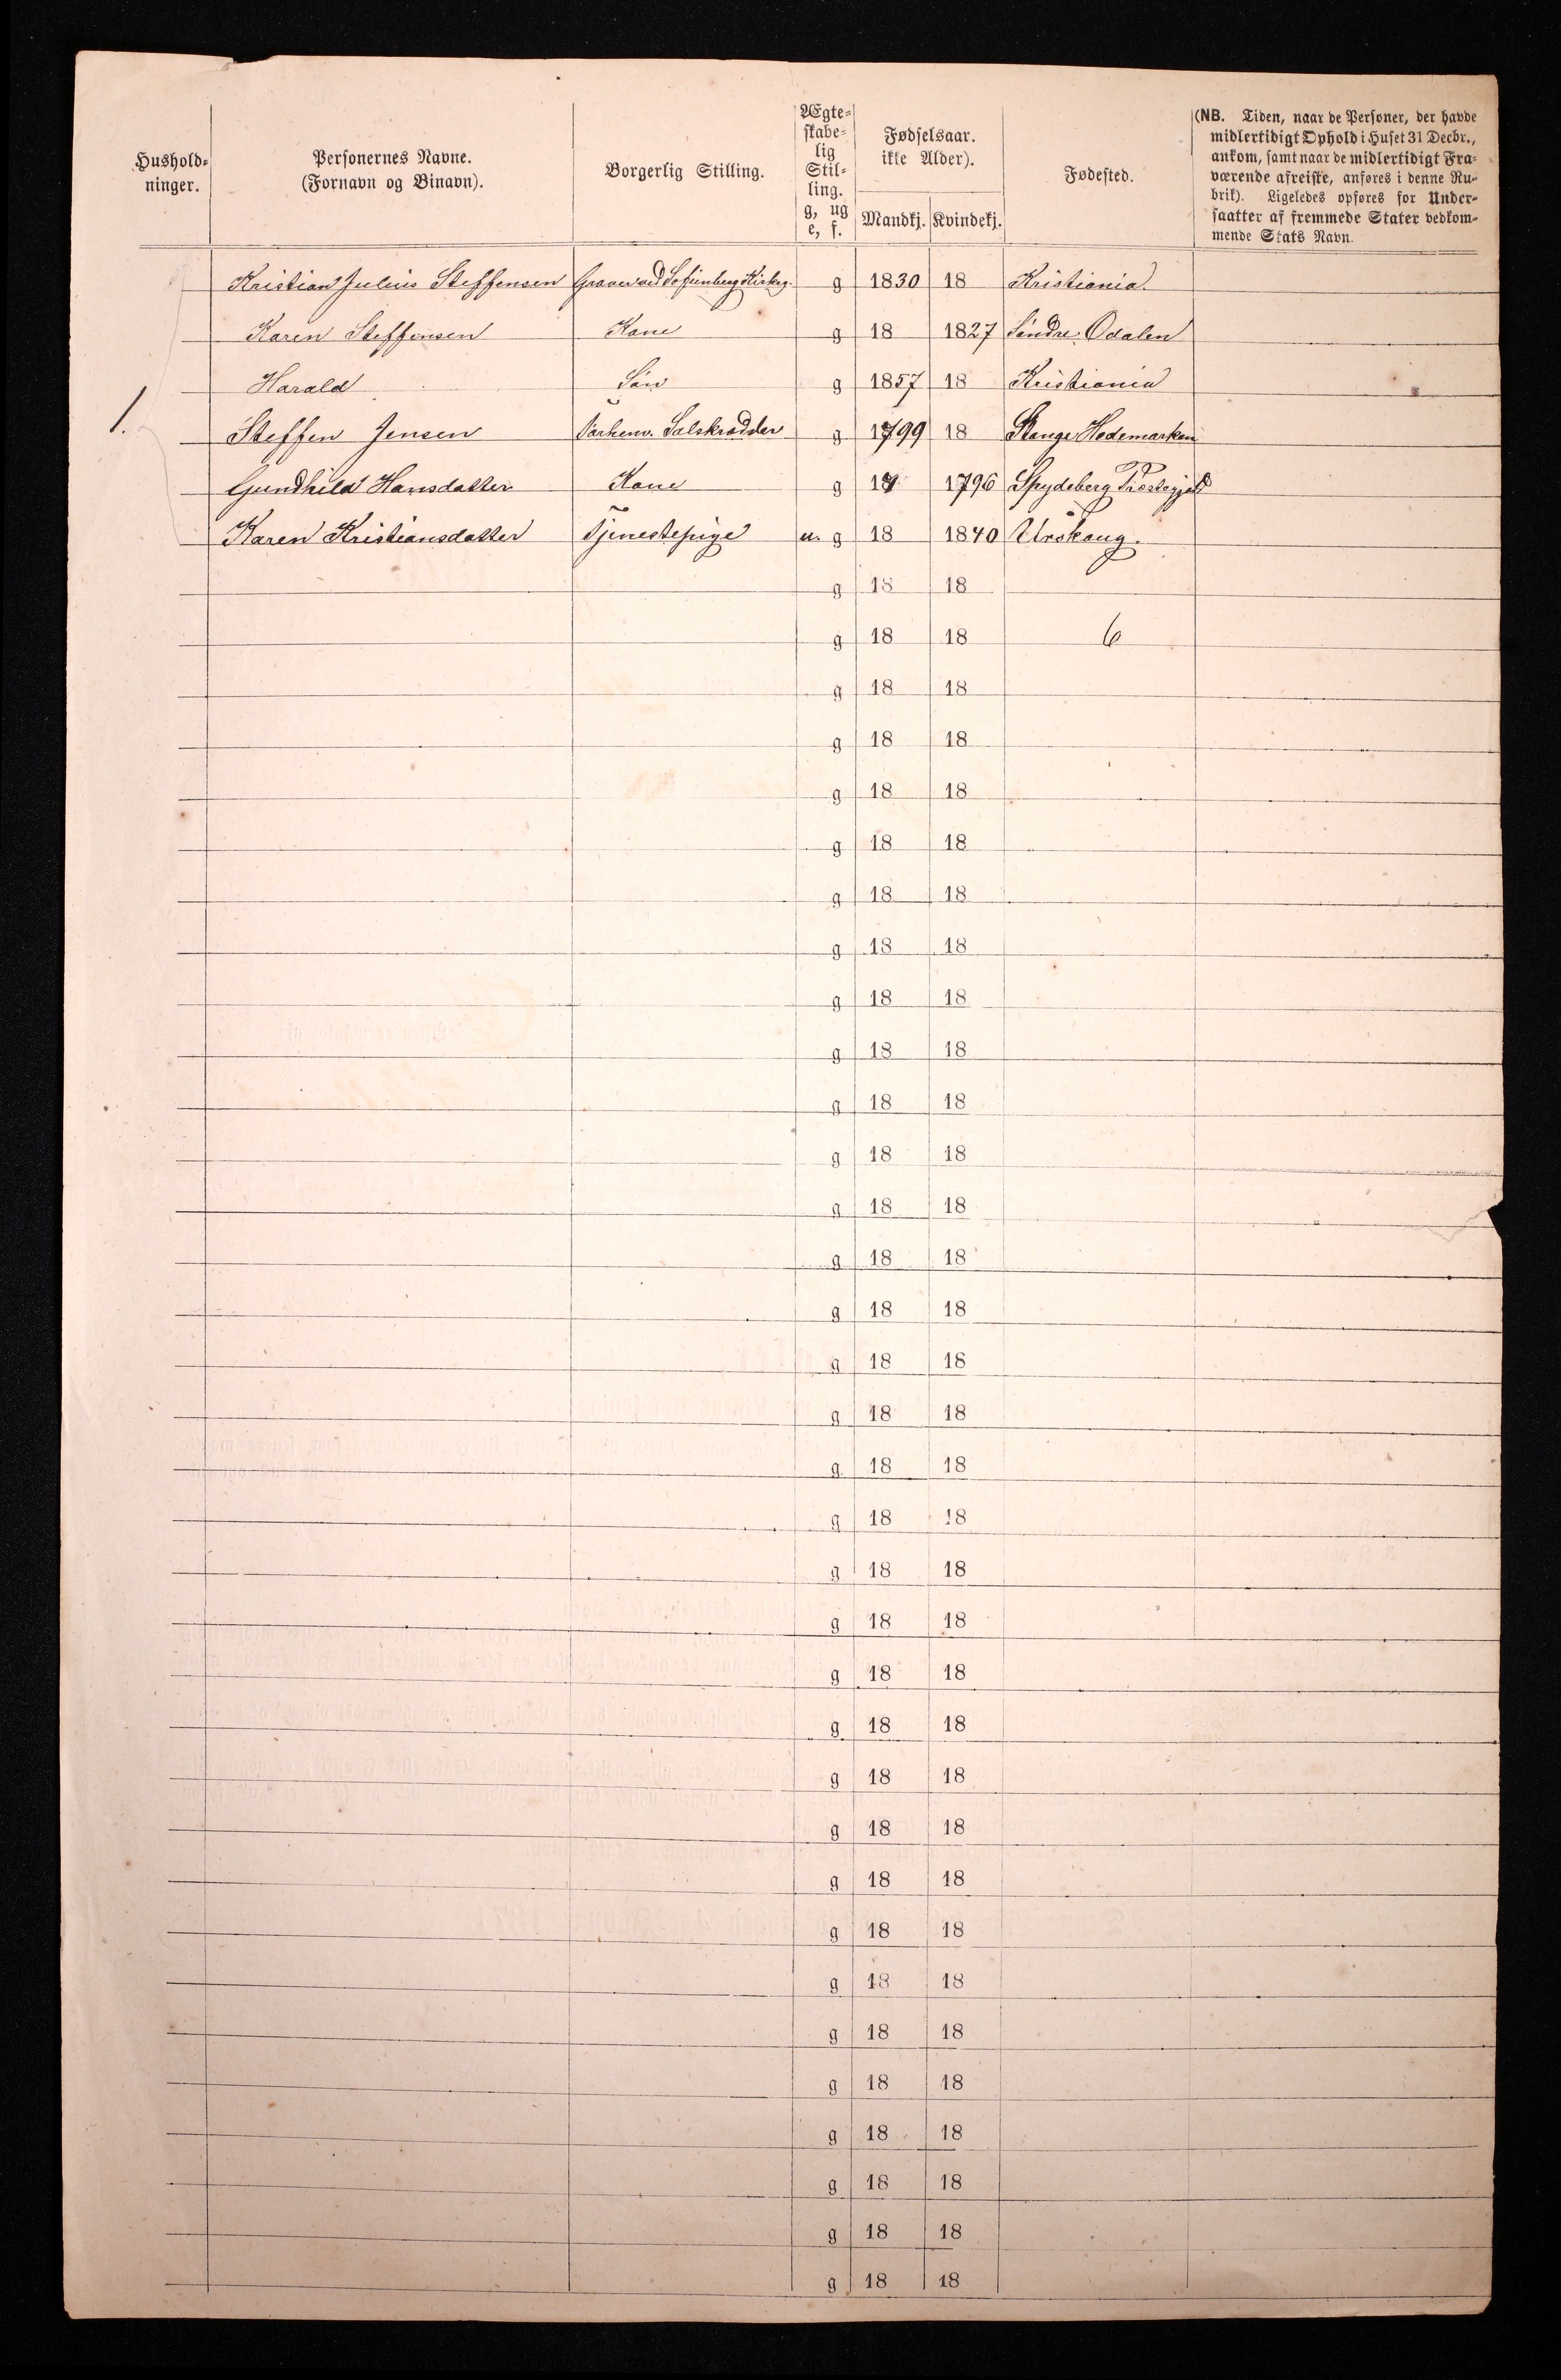 Hushold-
ninger.
Personernes Navne.
(Fornavn og Binavn).
Borgerlig Stilling.
Ægte-
skabe-
lig
Stil-
ling.
g, ug
e, f.
Fødselsaar.
ikke Alder).
Mandkj. Kvindekj.
Fødested.
(NB. Tiden, naar de Personer, der havde
midlertidigt Ophold i Huset 31 Decbr.,
ankom, samt naar de midlertidigt Fra-
værende afreiste, anføres i denne Ru-
brik). Ligeledes opføres for Under-
saatter af fremmede Stater vedkom-
mende Stats Navn.
Kristian Julius Steffensen Graver ved Sofienberg Kirkeg. g 1830 18 Kristiania
Karen Steffensen Kone g 18 1827 Søndre Odalen
Harald Søn g 1857 18 Kristiania
1. Steffen Jensen g 1799 18 Stange Hedemarken
Gundhild Hansdatter Kone g 17 1796 Spydeberg Præstegjeld
Karen Kristiansdatter Tjenestepige u. g 18 1840 Urskoug.
g 18 18
g 18 18 6
g 18 18
g 18 18
g 18 18
g 18 18
g 18 18
g 18 18
g 18 18
g 18 18
g 18 18
g 18 18
g 18 18
g 18 18
g 18 18
g 18 18
g 18 18
g 18 18
g 18 18
g 18 18
g 18 18
g 18 18
g 18 18
g 18 18
g 18 18
g 18 18
g 18 18
g 18 18
g 18 18
g 18 18
g 18 18
g 18 18
g 18 18
g 18 18